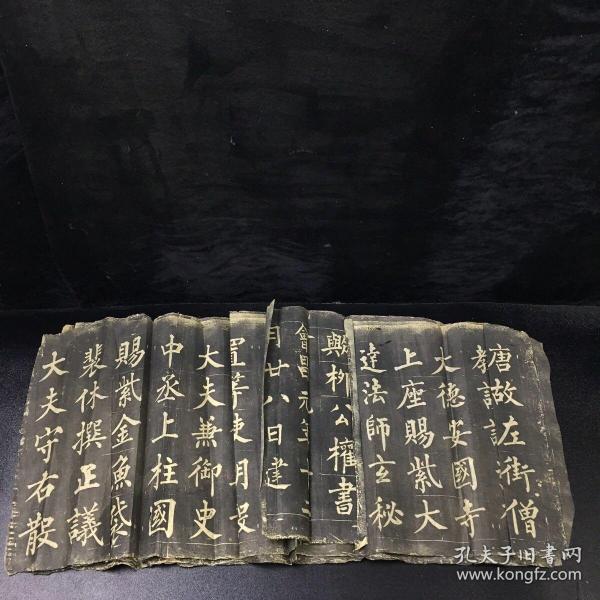 唐故左街僧
教談
大德安國寺
上座賜紫大
達法師玄秘
柳公權書
會昌元年十二
月廿八日建
置等使
大夫兼御史
中丞上柱國
賜紫金魚袋
裴休撰正議
大夫守右散
孔夫子旧書网
www.kongfz.com